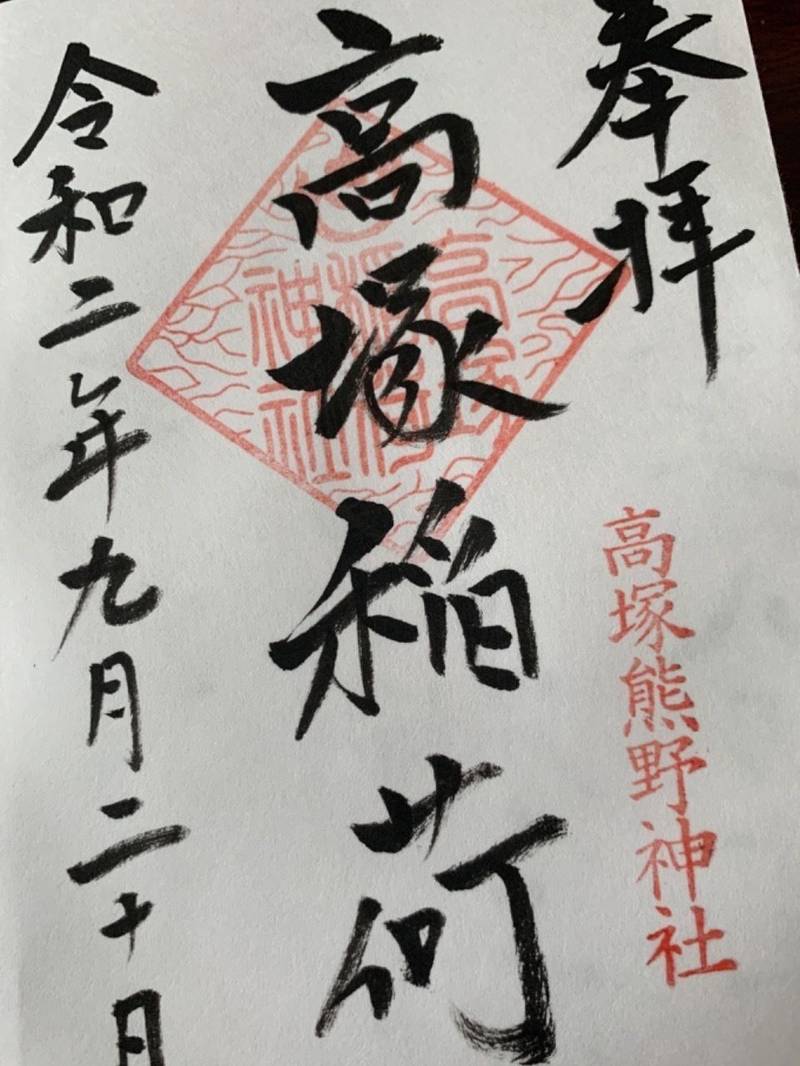 奉拝
高塚熊野神社
高塚稲荷
高塚稲荷神社
令和二年九月二十日